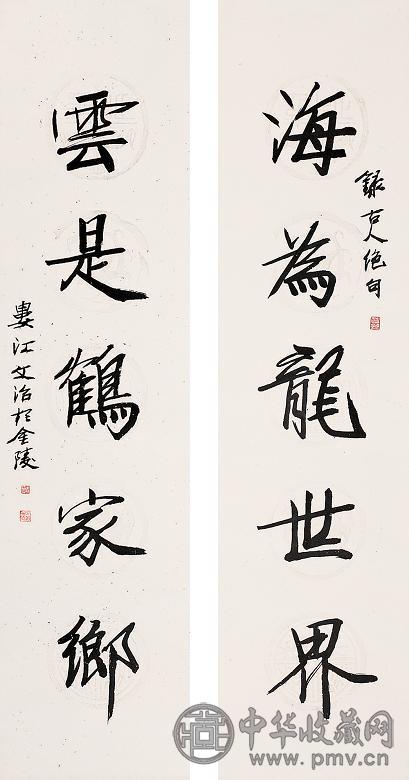 海為龍世界
錄古人絕句
雲是鶴家鄉
婁江文治於金陵
中华收藏网
www.pmv.cn